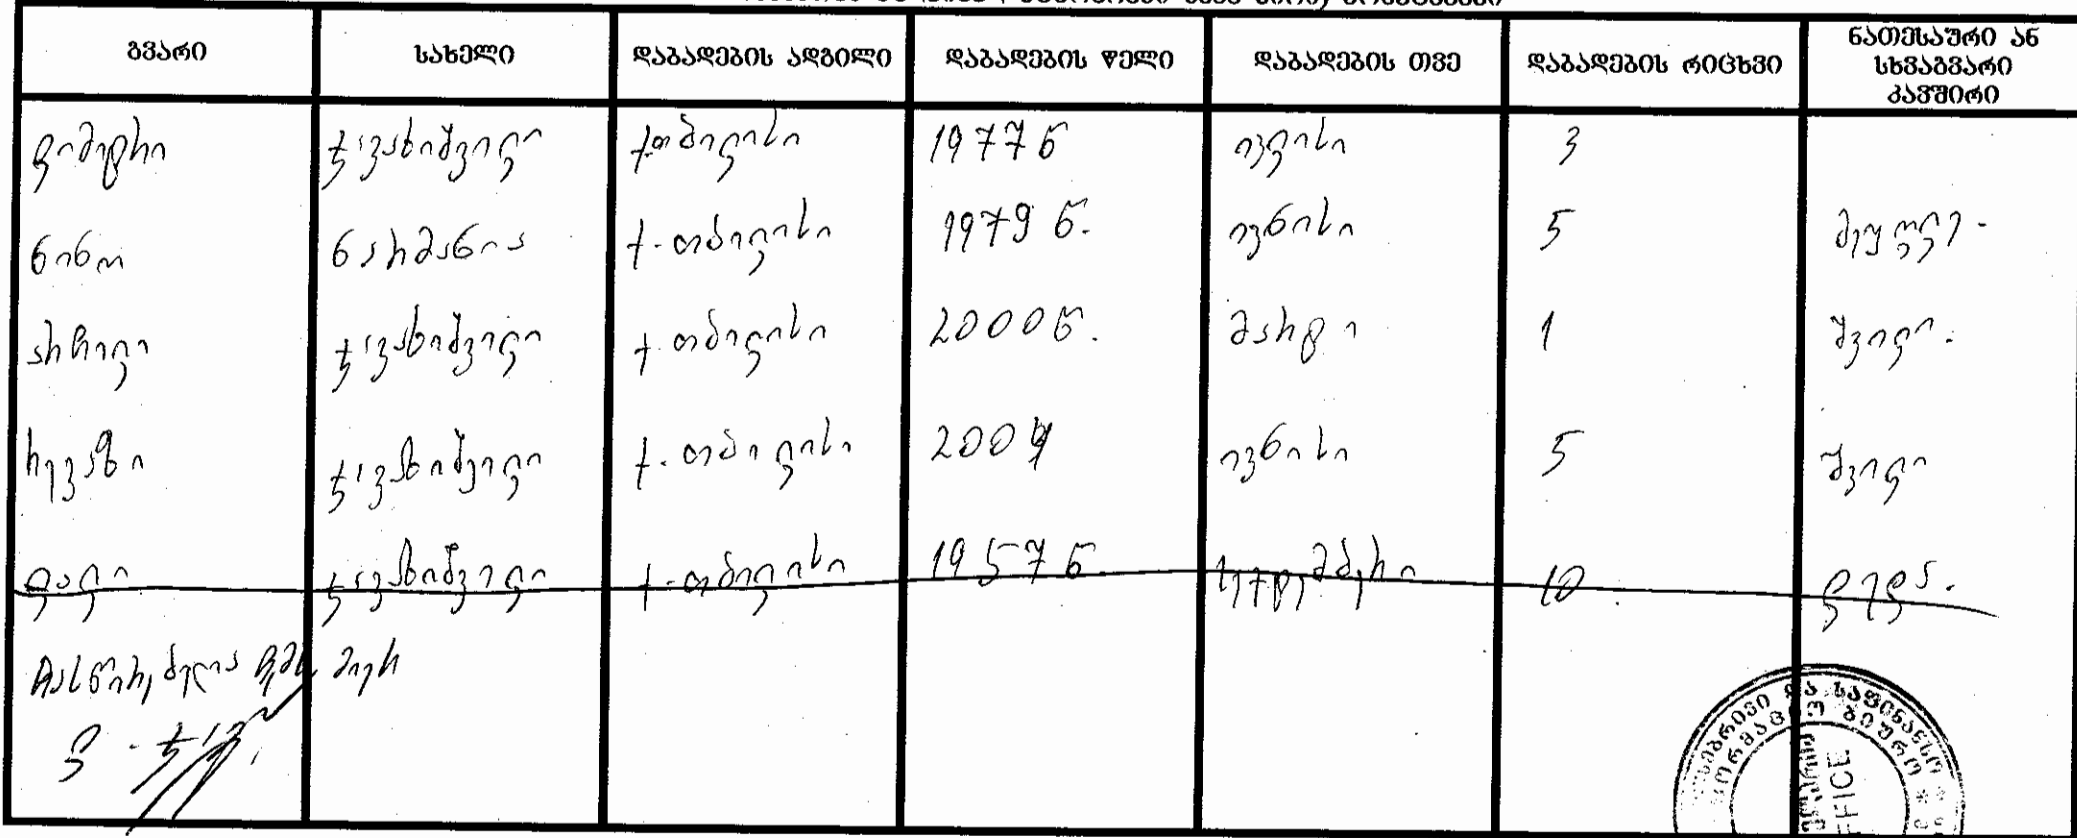 გვარი სახელი დაბადების ადგილი დაბადების წელი დაბადების თვე დაბადების რიცხვი ნათესაური ან სხვაგვარი კავშირი
დიმიტრი ჯავახიშვილი ქ. თბილისი 1977 წ ივლისი 3
ნინო ნარმანია ქ. თბილისი 1979 წ. ივნისი 5 მეუღლე
არჩილი ჯავახიშვილი ქ. თბილისი 2000 წ. მარტი 1 შვილი.
რევაზი ჯავახიშვილი ქ. თბილისი 2004 ივნისი 5 შვილი
ლალი ჯავახიშვილი ქ. თბილისი 1957 წ. სექტემბერი 10 დედა.
ჩასწორებულია ჩემს მიერ
დ. ჯავ
ქონებრივი და საფინანსო
ბიურო
OFFICE